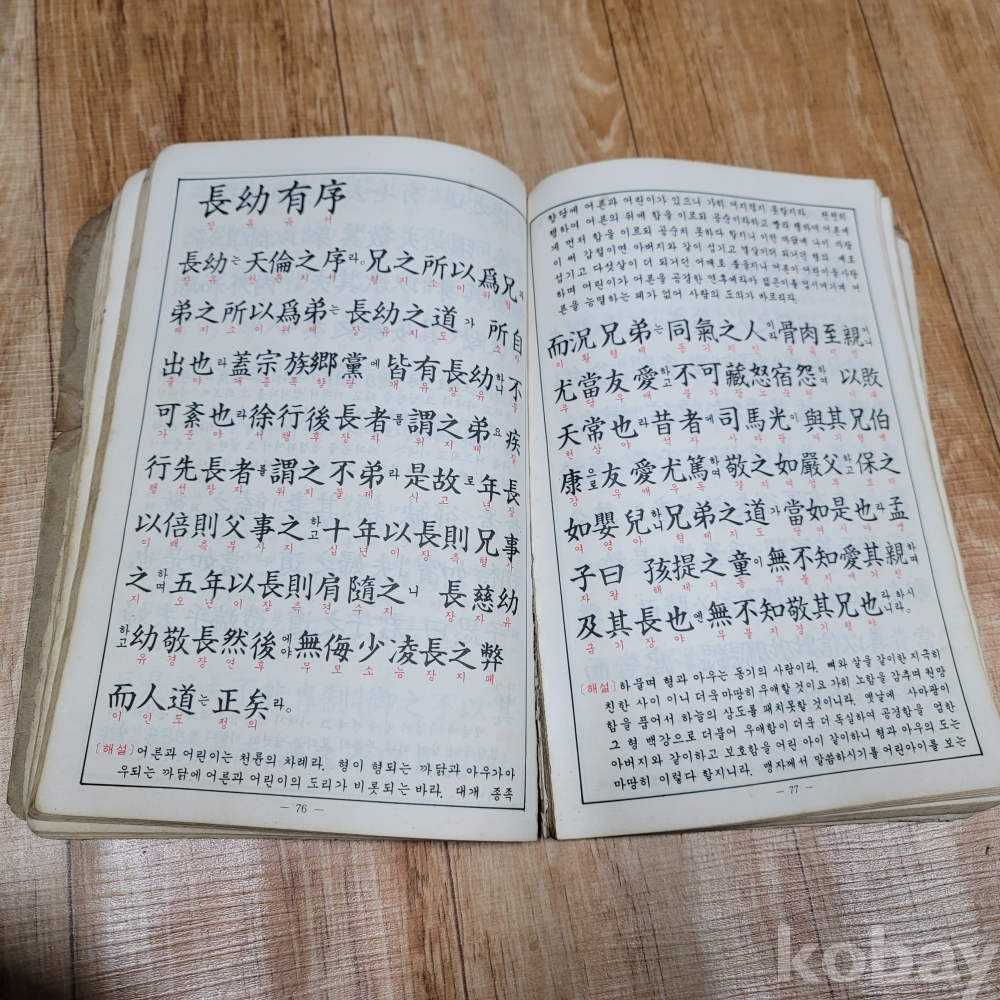 長幼有序
장유유서
長幼는天倫之序라。兄之所以爲兄과
장유천륜지서형지소이위형
弟之所以爲弟는長幼之道가 所自
제지소이위제장유지도소자
出也라蓋宗族鄕黨에皆有長幼하니不
출야개종족향당개유장유불
可紊也라徐行後長者를謂之弟요疾
가야서행후장자위지제질
行先長者를謂之不弟라是故로年長
행선장자위지불제시고년장
以倍則父事之하고十年以長則兄事
이배즉부사지십년이장즉형사
之하며五年以長則肩隨之니 長慈幼
지오년이장즉견수지장자유
하고幼敬長然後에야無侮少凌長之弊
유경장연후무모소능장지폐
而人道는正矣라。
이인도정의
[해설] 어른과 어린이는 천륜의 차례라. 형이 형되는 까닭과 아우가아
우되는 까닭에 어른과 어린이의 도리가 비롯되는 바라. 대개 종족
— 76 —
향당에 어른과 어린이가 있으니 가히 어지럽지 못할지라. 천천히
행하여 어른의 뒤에 함을 이르되 공순이라하고 빨리 행하여 어른에
게 먼저 함을 이르되 공순치 못하다 할지니 이런 까닭에 나이 자람
이 배 갑절이면 아버지와 같이 섬기고 열살이더 되거던 형의 예로
섬기고 다섯살이 더 되거던 어깨로 따를지니 어른이 어린이를사랑
하며 어린이가 어른을 공경한 연후에라야 젊은이를 업시여기며 어
른을 능멸하는 폐가 없어 사람의 도의가 바르리라.
而況兄弟는同氣之人이라骨肉至親이니
이황형제동기지인골육지친
尤當友愛하고不可藏怒宿怨하여以敗
우당우애불가장노숙원이패
天常也라昔者에司馬光이與其兄伯
천상야석자사마광여기형백
康으로友愛尤篤하여敬之如嚴父하고保之
강우애우독경지여엄부보지
如嬰兒하니兄弟之道가當如是也라孟
여영아형제지도당여시야맹
子曰 孩提之童이無不知愛其親하며
자왈해제지동무불지애기친
及其長也엔無不知敬其兄也라하시니라。
급기장야무불지경기형야
[해설] 하물며 형과 아우는 동기의 사람이라. 뼈와 살을 같이한 지극히
친한 사이 이니 더욱 마땅히 우애할 것이요 가히 노함을 감추며 원망
함을 품어서 하늘의 상도를 패치못할 것이니라. 옛날에 사마광이
그 형 백강으로 더불어 우애함이 더욱 더 독실하여 공경함을 엄한
아버지와 같이하고 보호함을 어린 아이 같이하니 형과 아우의 도는
마땅히 이렇다 할지니라. 맹자께서 말씀하시기를 어린아이를 보는
— 77 —
kobay